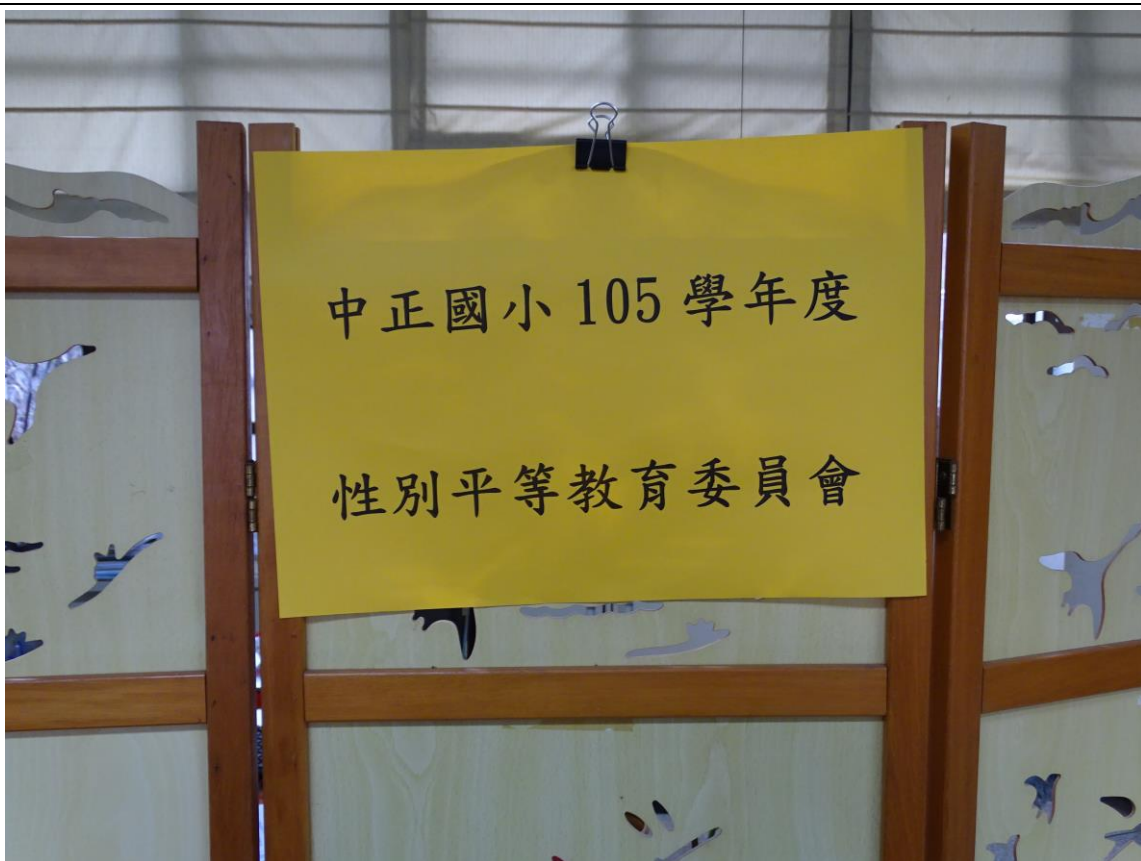 中正國小105學年度
性別平等教育委員會